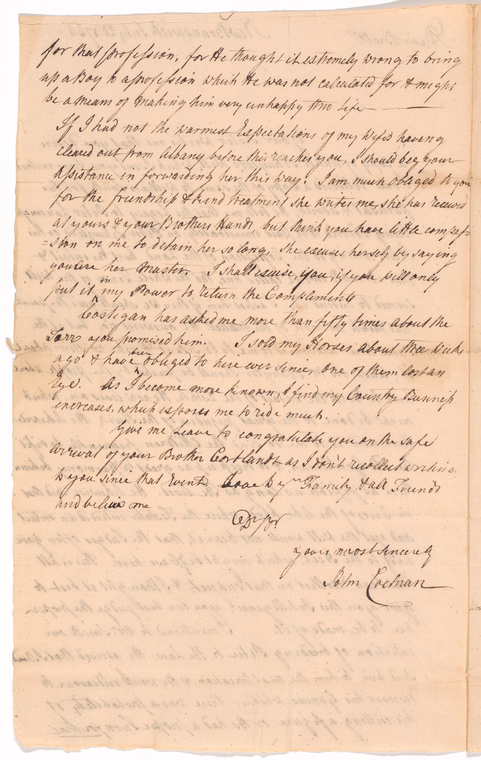 for that profession, for He thought it extremely wrong to bring
up a Boy to a profession which He was not calculated for & might
be a means of making him very unhappy thro life
If I had not the warmest Expectations of my Wife's having
cleared out from Albany before this reaches you, I should beg your
assistance in forwarding her this way. I am much obliged to you
for the friendship & kind treatment she writes me, she has received
at yours & your Brothers Hands, but think you have little compas-
sion on me to detain her so long, she excuses herself by saying
you are her Master. I shall excuse you, if you will only
put it in my Power to return the Compliment
Costigan has asked me more than fifty times about the
you promised him. I sold my Horses about three Weeks
ago & have been obliged to hire ever since, one of them lost an
Eye. As I become more known, I find my Country Business
increases, which exposes me to ride much.
Give me Leave to congratulate you on the safe
arrival of your Brother Cortlandt as I don't recollect writing
to you since that Event. Love to yr. Family & all Friends
and believe me
Dr Sr.
yours most sincerely
John Cochran